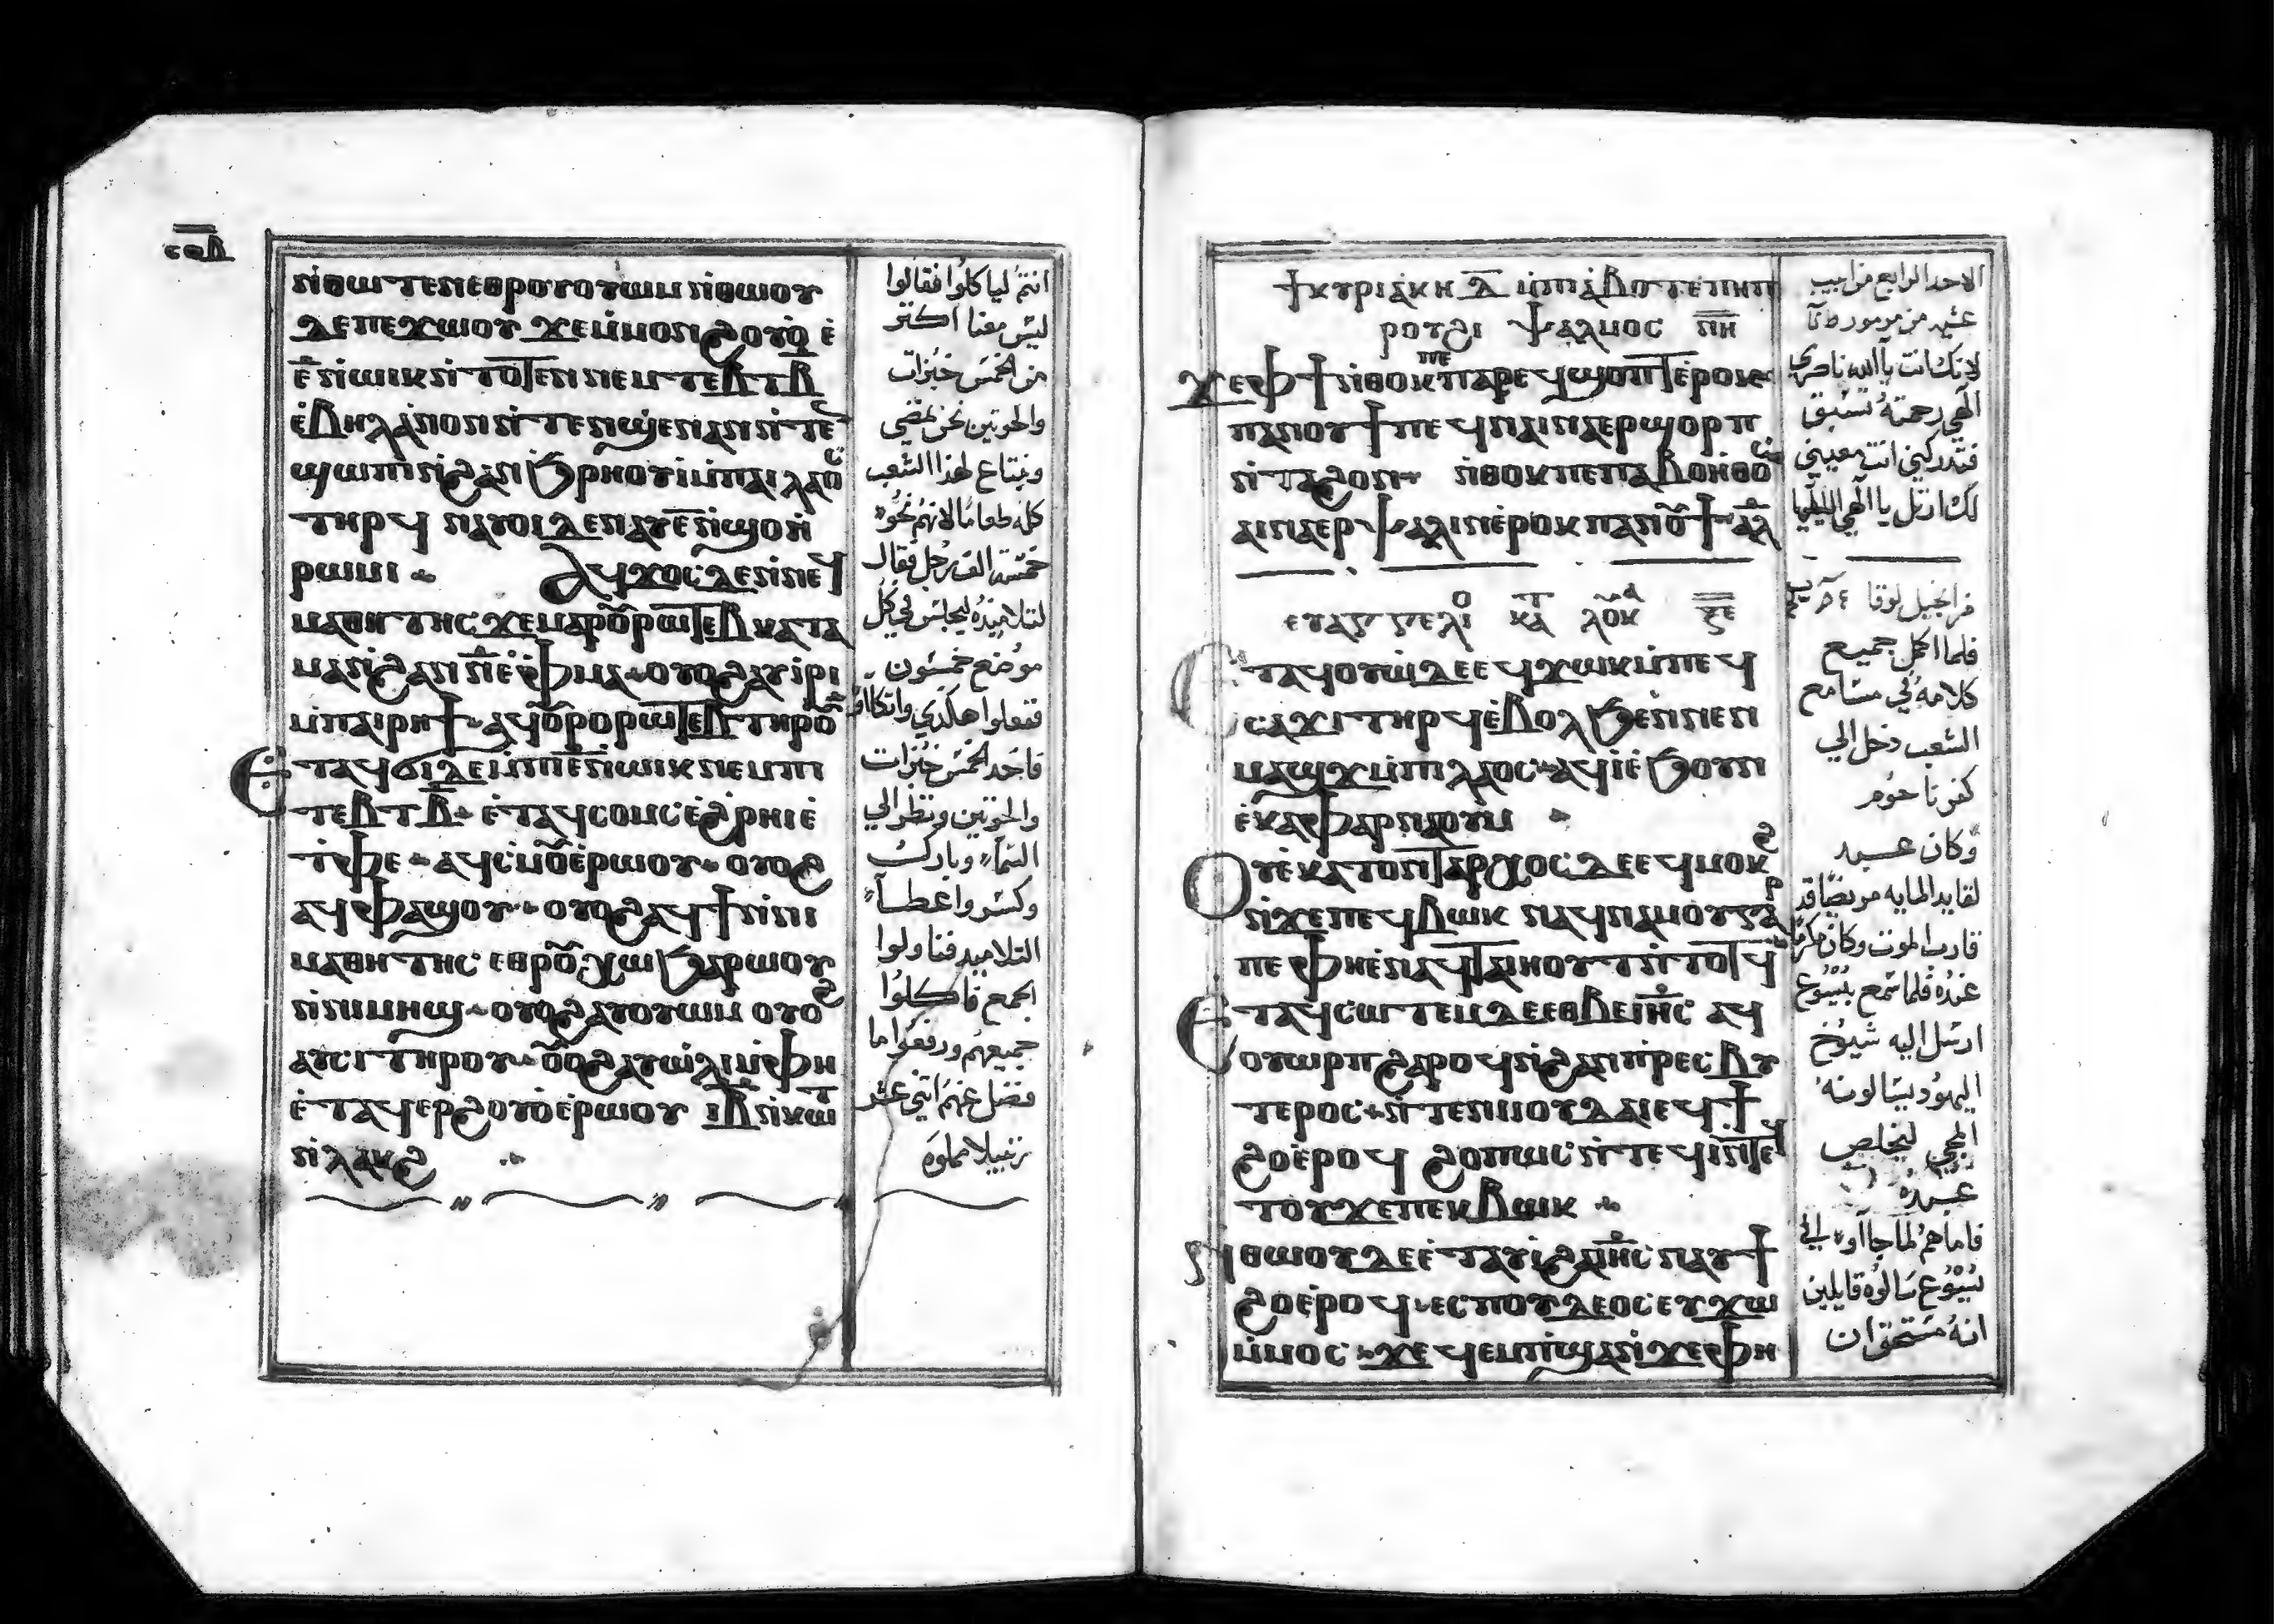 ⲛ̇ⲑⲱⲧⲉⲛⲉⲑⲣⲟⲩⲟⲩⲱⲙ ⲛ̇ⲑⲱⲟⲩ
ⲇⲉⲡⲉϫⲱⲟⲩ ϫⲉⲙ̇ⲙⲟⲛϩⲟⲩⲟ̇ ⲉ̇
ⲉ̅ ⲛ̇ⲱⲓⲕ ⲛ̇ⲧⲟⲧⲉⲛ ⲛⲉⲙ ⲧⲉⲃⲧ ⲃ̅
ⲉ̇ⲃⲏⲗ ⲁ̇ⲛⲟⲛ ⲛ̇ⲧⲉⲛϣⲉⲛⲁⲛ ⲛ̇ⲧⲉⲛ
ϣⲱⲡ ⲛ̇ϩⲁⲛϧⲣⲏⲟⲩⲓ ⲙ̇ⲡⲁⲓⲗⲁⲟⲥ
ⲧⲏⲣϥ ⲛⲁⲩⲟⲓ ⲇⲉ ⲛⲁⲩ ⲉ̅ ⲛ̇ϣⲟ ⲛ̇
ⲣⲱⲙⲓ ⲁϥϫⲟⲥ ⲇⲉ ⲛ̇ⲛⲉϥ
ⲙⲁⲑⲏⲧⲏⲥ ϫⲉ ⲙⲁⲣⲟⲩⲣⲱⲧⲉⲃ ⲕⲁⲧⲁ
ⲙⲁ ⲛ̇ϩⲁⲛ ⲛ̅ ⲉ̇ⲫⲙⲁ ⲟⲩⲟϩ ⲁⲩⲓ̇ⲣⲓ
ⲙ̇ⲡⲁⲓⲣⲏϯ ⲁϥⲟⲩⲣⲟⲣⲱⲧⲉⲃ ⲧⲏⲣⲟⲩ
ⲉⲧⲁϥϭⲓ ⲇⲉ ⲙ̇ⲡⲓ ⲉ̅ ⲛ̇ⲱⲓⲕ ⲛⲉⲙ ⲡⲓ
ⲧⲉⲃⲧ ⲃ̅ ⲉ̇ⲧⲁϥⲥⲟⲙⲥ ⲉ̇ϩⲣⲏⲓ ⲉ̇
ⲧ̇ⲫⲉ ⲁϥⲥ̇ⲙⲟⲩ ⲉ̇ⲣⲱⲟⲩ ⲟⲩⲟϩ
ⲁϥⲫⲁϣⲟⲩ ⲟⲩⲟϩ ⲁϥϯ ⲛ̇ⲛⲓ
ⲙⲁⲑⲏⲧⲏⲥ ⲉⲑⲣⲟⲩⲭⲱ ϧⲁⲣⲱⲟⲩ
ⲛ̇ⲛⲓⲙⲏϣ ⲟⲩⲟϩ ⲁⲩⲟⲩⲱⲙ ⲟⲩⲟϩ
ⲁⲩⲥⲓ ⲧⲏⲣⲟⲩ ⲟⲩⲟϩ ⲁⲩⲱ̇ⲗⲓ ⲙ̇ⲫⲏ
ⲉ̇ⲧⲁϥⲉⲣϩⲟⲩⲟ̇ ⲉ̇ⲣⲱⲟⲩ ⲓ̅ⲃ̅ ⲛ̇ⲕⲱⲧ
ⲛ̇ⲗⲁⲕϩ
انتم لياكلوا فقالوا
ليس معنا اكتر
من الخمس خبزات
والحوتين نحن نمضي
ونبتاع لهذا الشعب
كله طعاما لانهم نحو
خمسة الف رجل فقال
لتلاميذه ليجلس في كل
موضع خمسون
ففعلوا هكذي واتكاوا
فاخد الخمس خبزات
والحوتين ونظر الي
السماء وبارك
وكسر واعطا
التلاميد فناولوا
الجمع فاكلوا
جميعهم ورفعوا ما
فضل عنهم اتني عشر
زنبيلا مملوه
ϯⲕⲩⲣⲓⲁⲕⲏ ⲇ̅ ⲙ̇ⲡⲓⲁ̇ⲃⲟⲧ ⲉ̇ⲡⲏⲡ
ⲣⲟⲩϩⲓ ⲯⲁⲗⲙⲟⲥ ⲛ̅ⲏ̅
ϫⲉ ⲫϯ ⲛ̇ⲑⲟⲕ ⲡⲉ ⲡⲁⲣⲉϥϣⲟⲡⲧ ⲉ̇ⲣⲟⲕ
ⲡⲁⲛⲟⲩϯ ⲡⲉϥⲛⲁⲓ ⲛⲁⲉⲣϣⲟⲣⲡ
ⲛ̇ⲧⲁϩⲟⲛ ⲛ̇ⲑⲟⲕ ⲡⲉ ⲡⲁⲃⲟⲏ̇ⲑⲟⲥ
ⲁⲓⲛⲁⲉⲣⲯⲁⲗⲓⲛ ⲉ̇ⲣⲟⲕ ⲡⲁⲛⲟⲩϯ ⲁⲗ
ⲉⲩⲁⲅⲅⲉⲗⲓⲟ ⲕⲁⲧ ⲗⲟⲩⲕ ⲝ̅ⲉ̅
ⲉⲧⲁϥⲟⲩⲱ̇ ⲇⲉ ⲉϥϫⲱⲕ ⲙ̇ⲡⲉϥ
ⲥⲁϫⲓ ⲧⲏⲣϥ ⲉ̇ⲃⲟⲗ ϧⲉⲛ ⲛⲉⲛ
ⲙⲁϣϫ ⲙ̇ⲡⲓⲗⲁⲟⲥ ⲁϥⲓ̇ ⲉ̇ϧⲟⲩⲛ
ⲉ̇ⲕⲁⲫⲁⲣⲛⲁⲟⲩⲙ
ⲟⲩⲉ̇ⲕⲁⲧⲟⲛⲧⲁⲣⲭⲟⲥ ⲇⲉ ⲉϥⲙⲟⲕϩ
ⲛ̇ϫⲉ ⲡⲉϥⲃⲱⲕ ⲛⲁϥⲛⲁⲙⲟⲩ ⲅⲁⲣ
ⲡⲉ ⲫⲏ ⲉ̇ⲛⲁϥⲧⲁⲓⲏⲟⲩⲧ ⲛ̇ⲧⲟⲧϥ
ⲉⲧⲁϥⲥⲱⲧⲉⲙ ⲇⲉ ⲉⲑⲃⲉ ⲓⲏⲥ ⲁϥ
ⲟⲩⲱⲣⲡ ϩⲁⲣⲟϥ ⲛ̇ϩⲁⲛⲡ̇ⲣⲉⲥⲃⲩ
ⲧⲉⲣⲟⲥ ⲛ̇ⲧⲉ ⲛⲓⲓⲟⲩⲇⲁⲓ ⲉϥϯ
ϩⲟ ⲉ̇ⲣⲟϥ ϩⲟⲡⲱⲥ ⲛ̇ⲧⲉϥⲓ̇ ⲛ̇ⲧⲉϥ
ⲧⲟⲩϫⲉ ⲡⲉⲕⲃⲱⲕ
ⲛⲑⲱⲟⲩ ⲇⲉ ⲉ̇ⲧⲁⲩⲓ̇ ϩⲁ ⲓⲏⲥ ⲛⲁⲩϯ
ϩⲟ ⲉ̇ⲣⲟϥ ⲉⲥⲡⲟⲩⲇⲉⲟⲥ ⲉⲩϫⲱ
ⲙ̇ⲙⲟⲥ ϫⲉ ϥⲉⲙⲡ̇ϣⲁ ⲛ̇ϫⲉ ⲫⲏ
الاحد الرابع من ابيب
عشيه من مزمور
لانك انت يا الله ناصري
الهي رحمته تسبق
فتدركني انت معيني
لك ارتل يا الهي الليلويا
من انجيل لوقا
فلما اكمل جميع
كلامه في مسامع
الشعب دخل الي
كفرناحوم
وكان عبد
لقايد المايه مريضا قد
قارب الموت وكان مكرما
عنده فلما سمع بيسوع
ارسل اليه شيوخ
اليهود يسالونه
المجي ليخلص
عبده
فاماهم لما جاآوا الي
يسوع سالوه قايلين
انه مستحق ان